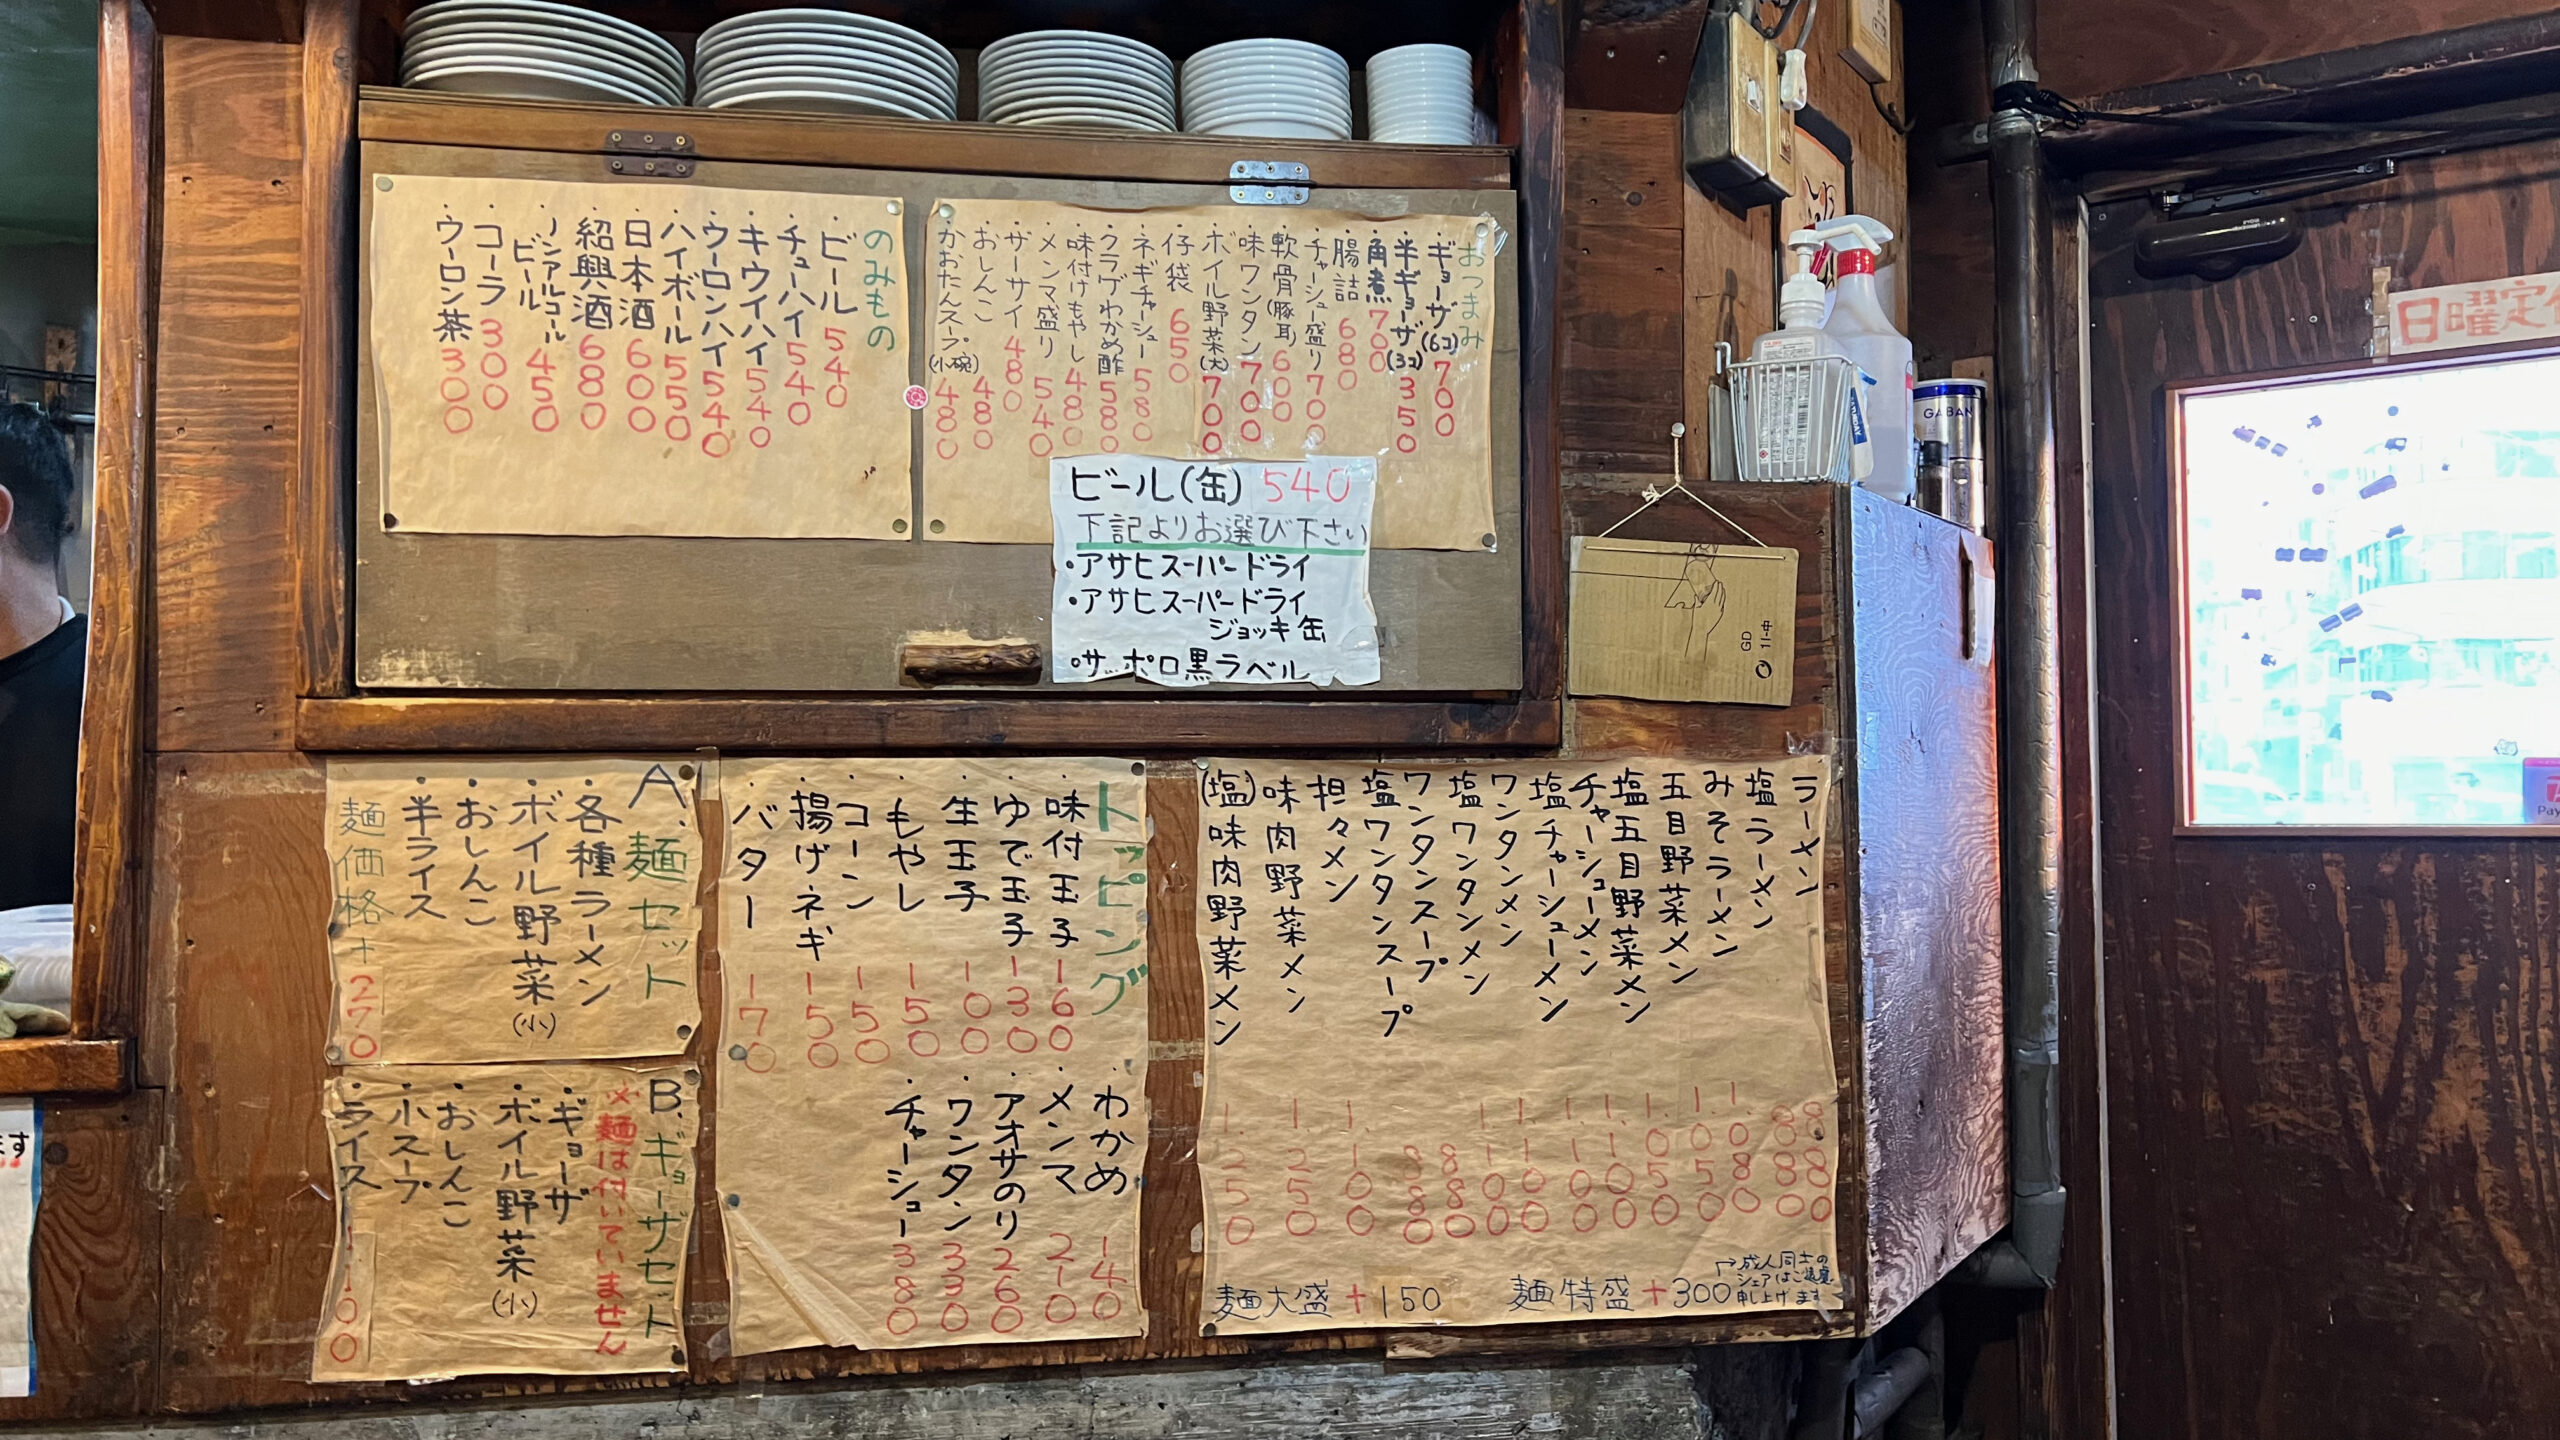 のみもの
・ビール 540
・チューハイ 540
・キウイハイ 540
・ウーロンハイ 540
・ハイボール 550
・日本酒 600
・紹興酒 680
・ノンアルコール
ビール 450
・コーラ 300
・ウーロン茶 300
おつまみ
・ギョーザ(6コ) 700
・半ギョーザ(3コ) 350
・角煮 700
・腸詰 680
・チャーシュー盛り 700
・軟骨(豚耳) 600
・味ワンタン 700
・ボイル野菜(大) 700
・仔袋 650
・ネギチャーシュー 580
・クラゲわかめ酢 580
・味付けもやし 480
・メンマ盛り 540
・ザーサイ 480
・おしんこ 480
・かおたんスープ(小碗) 480
ビール(缶) 540
下記よりお選び下さい
・アサヒスーパードライ
・アサヒスーパードライ
ジョッキ缶
・サッポロ黒ラベル
GD
GABAN
日曜定
Pay
A.麺セット
・各種ラーメン
・ボイル野菜(小)
・おしんこ
・半ライス
麺価格+270
B.ギョーザセット
※麺は付いていません
・ギョーザ
・ボイル野菜(小)
・おしんこ
・小スープ
・ライス 1100
ます
トッピング
・味付玉子 160
・ゆで玉子 130
・生玉子 100
・もやし 150
・コーン 150
・揚げネギ 150
・バター 170
・わかめ 140
・メンマ 210
・アオサのり 260
・ワンタン 330
・チャーシュー 380
ラーメン 880
塩ラーメン 880
みそラーメン 1.080
五目野菜メン 1.050
塩五目野菜メン 1.050
チャーシューメン 1.100
塩チャーシューメン 1.100
ワンタンメン 1.100
塩ワンタンメン 1.100
ワンタンスープ 880
塩ワンタンスープ 880
担々メン 1.100
味肉野菜メン 1.250
(塩)味肉野菜メン 1.250
麺大盛+150
麺特盛+300
成人同士の
シェアはご遠慮
申し上げます